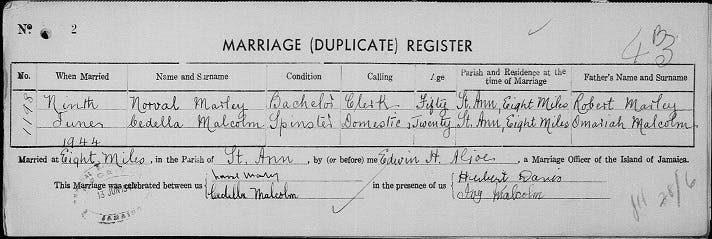 No. 2
MARRIAGE (DUPLICATE) REGISTER
No. When Married Name and Surname Condition Calling Age Parish and Residence at the time of Marriage Father's Name and Surname
1118 Ninth Norval Marley Bachelor Clerk Fifty St. Ann, Eight Miles Robert Marley
June Cedella Malcolm Spinster Domestic Twenty St. Ann, Eight Miles Omariah Malcolm
1944
Married at Eight Miles, in the Parish of St. Ann, by (or before) me Edwin H. , a Marriage Officer of the Island of Jamaica.
This Marriage was celebrated between us Cedella Malcolm in the presence of us Herbert Davis
Ivy Malcolm
13 JUN
JAMAICA
28/6